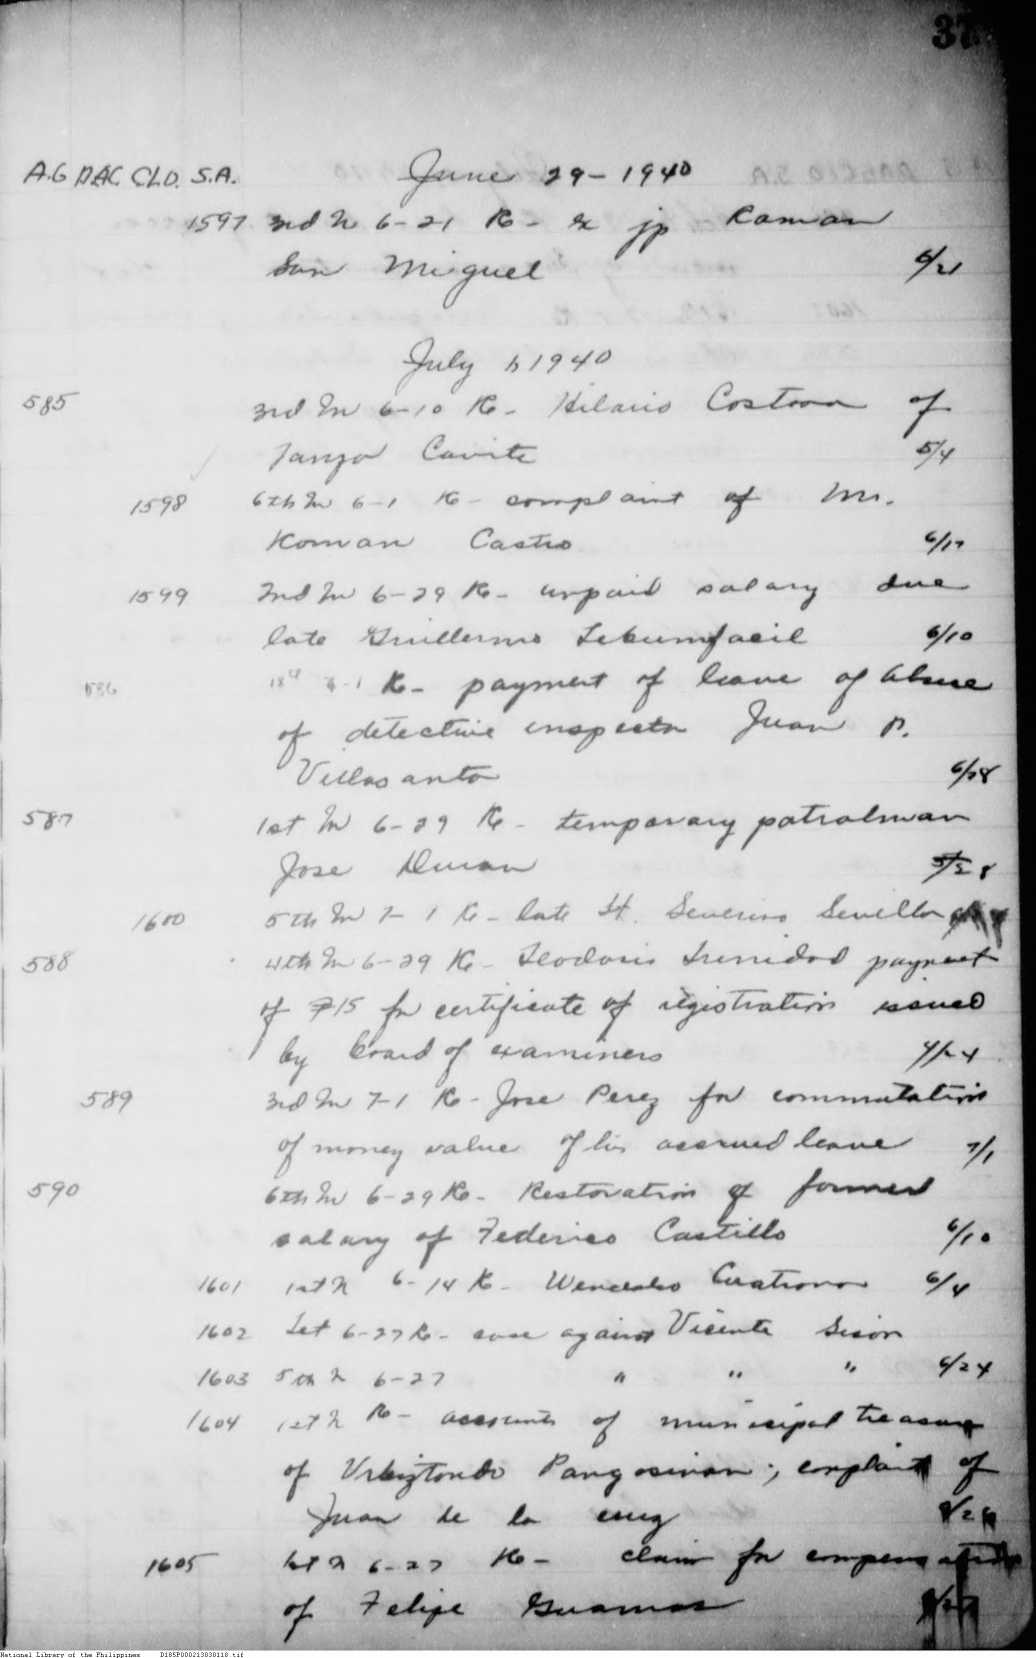 37
A.G DAC CLD. S.A. June 29-1940
1597 3rd In 6-21 Re- ex jp Roman
San Miguel 6/21
July 1, 1940
585 3rd In 6-10 Re- Hilario Costova of
Tanza Cavite 5/4
1598 6th In 6-1 Re- complaint of Mr.
Roman Castro 6/17
1599 2nd In 6-29 Re- unpaid salary due
late Guillermo Lebumfacil 6/10
586 Re- payment of leave of
of detective inspector Juan P.
Villasanta 6/28
587 1st In 6-29 Re- temporary patrolman
Jose Duran 5/28
1600 5th In 7-1 Re- late Lt. Severino Sevilla
588 4th In 6-29 Re- Teodoro Trinidad payment
of ₱15 for certificate of registration issued
by board of examiners 4/24
589 3rd In 7-1 Re- Jose Perez for commutation
of money value of his accrued leave 7/1
590 6th In 6-29 Re- Restoration of former
salary of Federico Castillo 6/10
1601 1st In 6-14 Re- Wenceslao 6/4
1602 Let 6-27 Re- case against Vicente Sison
1603 5th In 6-27 " " " 6/24
1604 1st In Re- accounts of municipal treasurer
of Urbiztondo Pangasinan; complaint of
Juan de la Cruz
1605 1st In 6-27 Re- claim for compensation
of Felipe Guamos
National Library of the Philippines D185P000213838118.tif